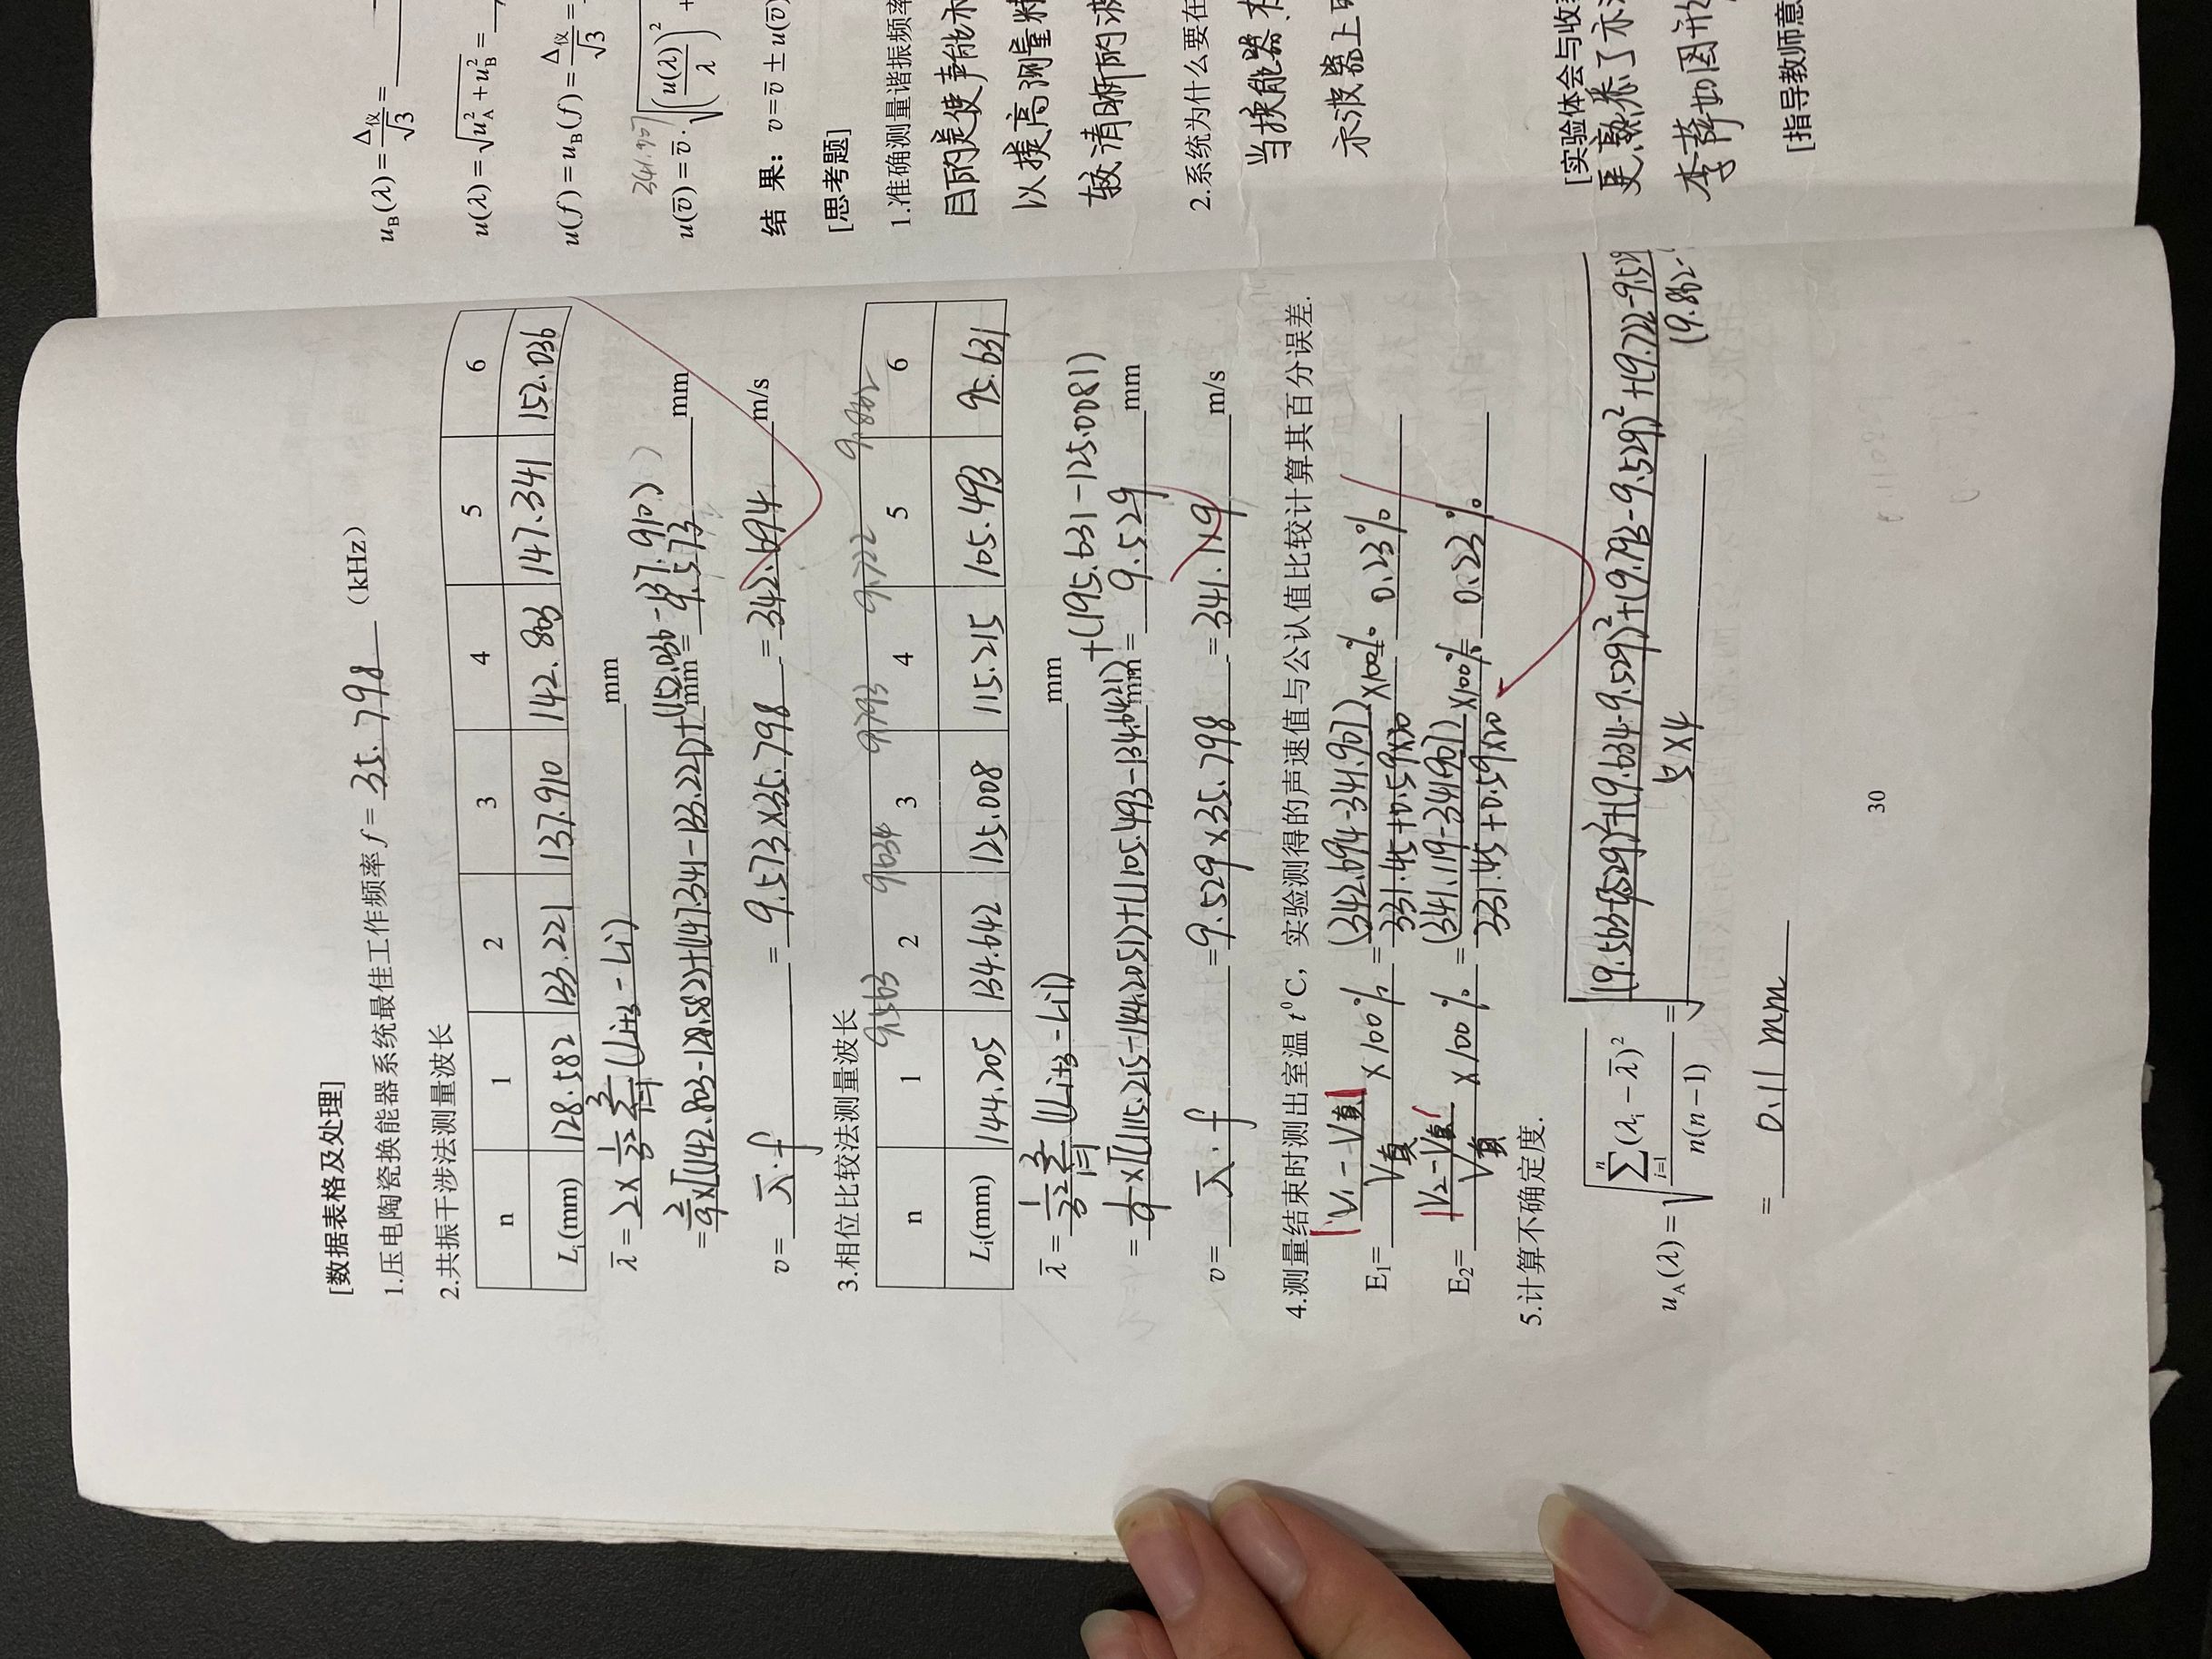 [数据表格及处理]
1.压电陶瓷换能器系统最佳工作频率 f = 35.798 (kHz)
2.共振干涉法测量波长
n 1 2 3 4 5 6
Li(mm) 128.582 133.221 137.910 142.803 147.341 152.036
λ̄ = 2×1/3² Σ(i=1→3)(Li+3 - Li) mm
= 2/9×[(142.803-128.582)+(147.341-133.221)+(152.036-137.910)] mm = 9.573 mm
v= λ̄·f = 9.573×35.798 = 342.694 m/s
3.相位比较法测量波长
9.563 9.634 9.793 9.722 9.862
n 1 2 3 4 5 6
Li(mm) 144.205 134.642 125.008 115.215 105.493 95.631
λ̄ = 1/3² Σ(i=1→3)(|Li+3 - Li|) mm
+(|95.631-125.008|)
= 1/9×[(|115.215-144.205|)+(|105.493-134.642|) mm = 9.529 mm
v= λ̄·f =9.529×35.798 =341.119 m/s
4.测量结束时测出室温 t⁰C，实验测得的声速值与公认值比较计算其百分误差.
E1= |V1-V真|/V真 ×100% = (342.694-341.907)/(331.45+0.59×20) ×100%= 0.23%
E2= |V2-V真|/V真 ×100% = (341.119-341.907)/(331.45+0.59×20) ×100%= 0.23%
5.计算不确定度.
uA(λ) = √(Σ(i=1→n)(λi-λ̄)²/n(n-1)) = √((9.563-9.529)²+(9.634-9.529)²+(9.793-9.529)²+(9.722-9.529
5×4
(9.862-
= 0.11 mm
30
uB(λ) = Δ仪/√3 =
u(λ) = √(uA²+uB²) =
u(f) = uB(f) = Δ仪/√3 =
341.907
u(v̄) = v̄·√((u(λ)/λ)² +
结 果：v=v̄±u(v̄)
[思考题]
1.准确测量谐振频率
目的是使声能
以提高测量精
较清晰的波
2.系统为什么要在
当换能器
示波器上
[实验体会与收
更熟悉了示
李萨如图形
[指导教师意